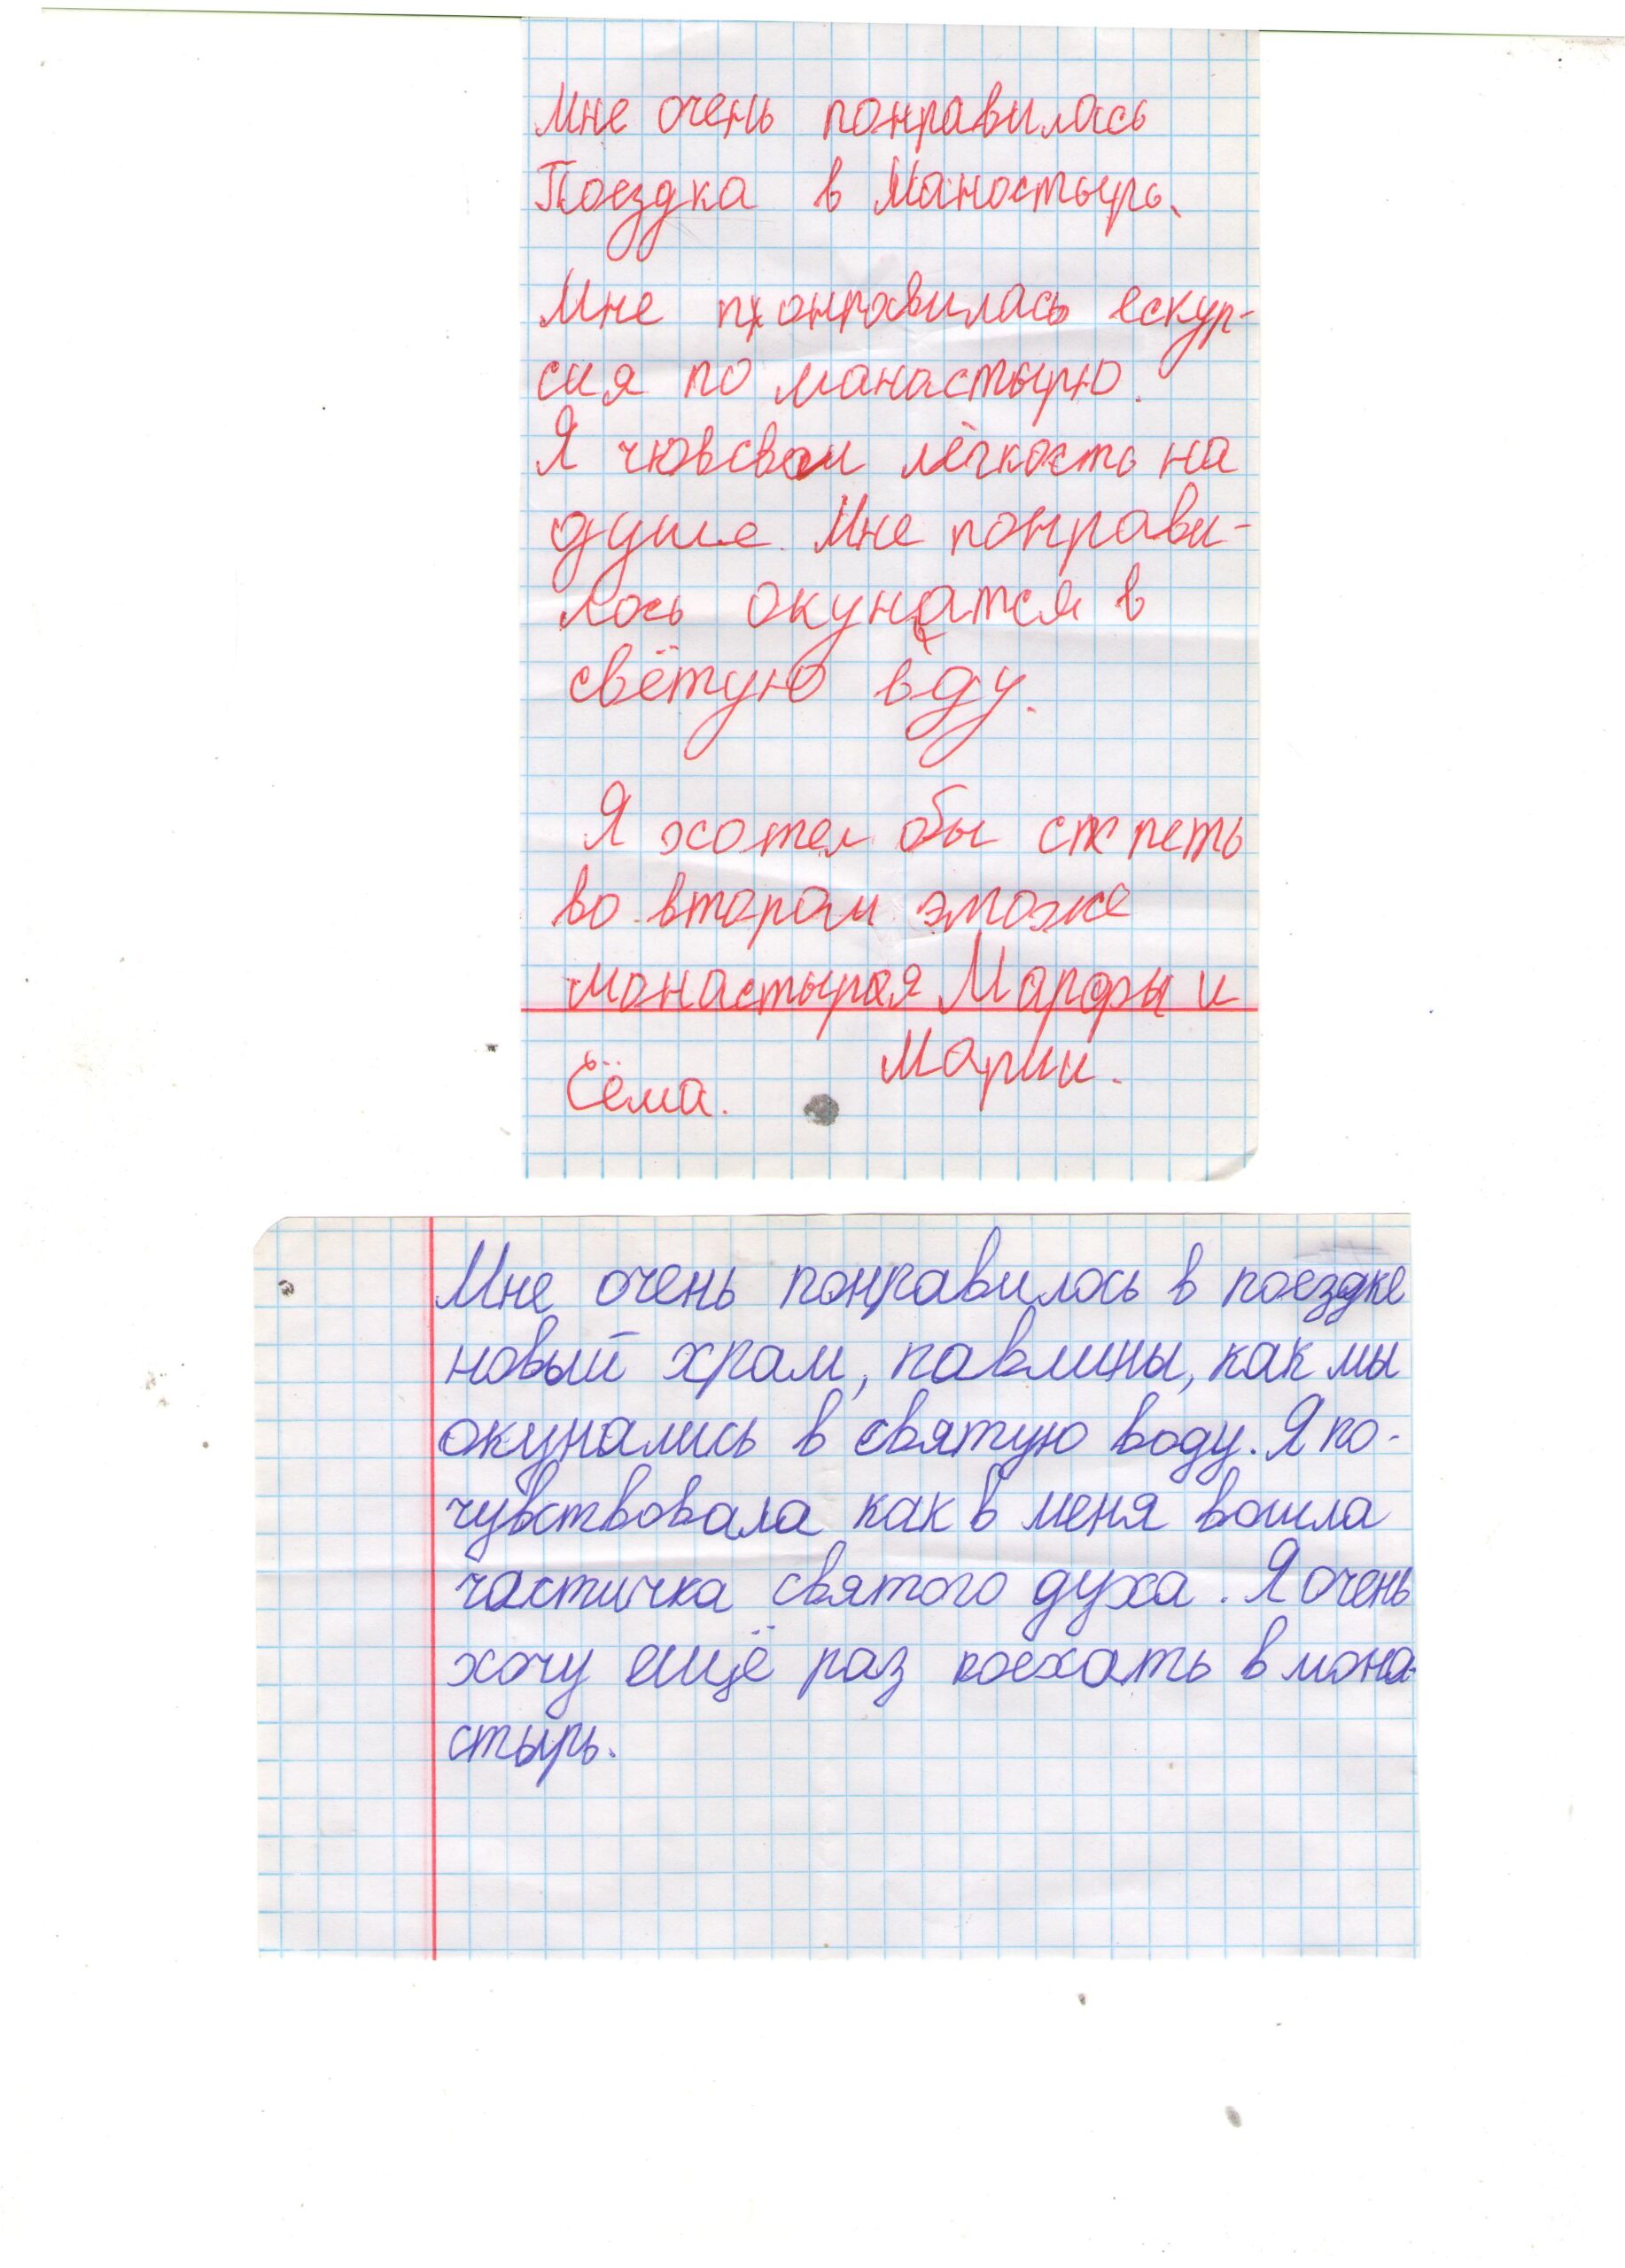 Мне очень понравилась
Поездка в Маностырь.
Мне понравилась ескур-
сия по манастырю.
Я чювсвал лёгкость на
душе. Мне понрави-
лось окунатся в
свётую вду.
Я хотел бы
во втором этаже
монастыря Марфы и
Марии.
Сёма.
Мне очень понравилось в поездке
новый храм, павлины, как мы
окунались в святую воду. Я по-
чувствовала как в меня вошла
частичка святого духа. Я очень
хочу ещё раз поехать в мона-
стырь.